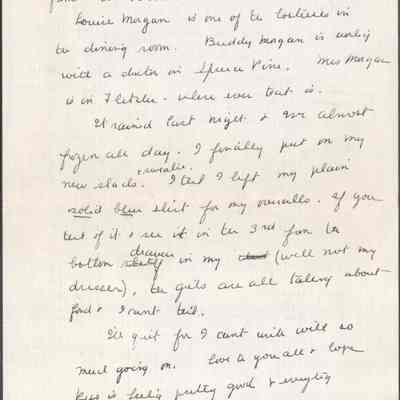 Louise Morgan is one of the hostesses in
the dining room. Buddy Morgan is working
with a doctor in Spruce Pine. Mrs Morgan
is in Fletcher - where ever that is.
It rained last night & I've almost
frozen all day. I finally put on my
new slacks. I left my plain
& sweater.
solid blue shirt for my overalls. If you
think of it & see it in the 3rd from the
bottom drawer in my (well not my
dresser), the girls are all talking about
food & I can't think.
I'll quit for I can't write with so
much going on. Love to you all & hope
is feeling pretty good & everything